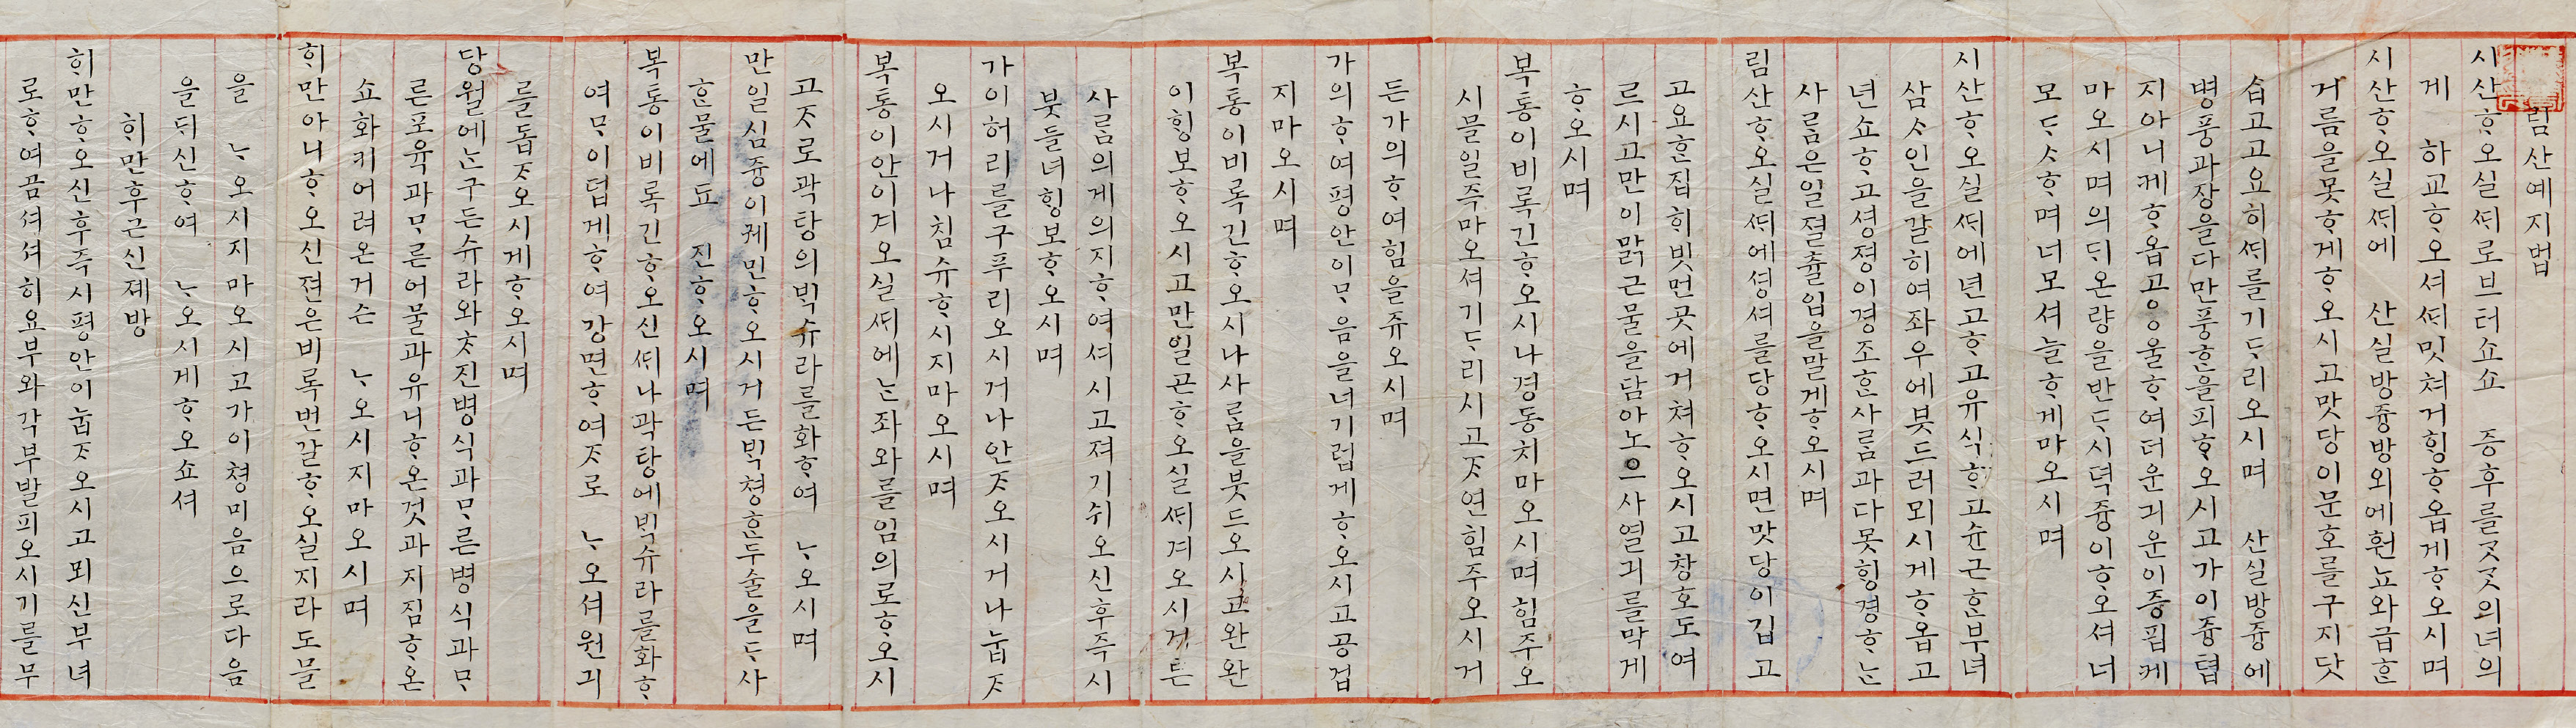 림산예지법
시산ᄒᆞ오실ᄯᆡ로브터쇼쇼 증후를ᄀᆞᆺᄀᆞᆺ의녀의
게 하교ᄒᆞ오셔ᄯᆡ밋쳐거ᄒᆡᆼᄒᆞ옵게ᄒᆞ오시며
시산ᄒᆞ오실ᄯᆡ에 산실방즁방외에훤뇨와급ᄒᆞᆫ
거름을못ᄒᆞ게ᄒᆞ오시고맛당이문호를구지닷
습고고요히ᄯᆡ를기ᄃᆞ리오시며 산실방즁에
병풍과장을다만풍ᄒᆞᆫ을피ᄒᆞ오시고가이즁텹
지아니케ᄒᆞ옵고ᄋᆞ울ᄒᆞ여더운긔운이증핍케
마오시며의ᄃᆡ온량을반ᄃᆞ시뎍즁이ᄒᆞ오셔너
모ᄃᆞᄉᆞᄒᆞ며너모셔늘ᄒᆞ게마오시며
시산ᄒᆞ오실ᄯᆡ에년고ᄒᆞ고유식ᄒᆞ고슌근ᄒᆞᆫ부녀
삼ᄉᆞ인을갈히여좌우에붓드러뫼시게ᄒᆞ옵고
년쇼ᄒᆞ고셩졍이경조ᄒᆞᆫ사ᄅᆞᆷ과다못ᄒᆡᆼ경ᄒᆞᄂᆞᆫ
사ᄅᆞᆷ은일졀츌입을말게ᄒᆞ오시며
림산ᄒᆞ오실ᄯᆡ에셩셔를당ᄒᆞ오시면맛당이깁고
고요ᄒᆞᆫ집ᄒᆡ빗먼곳에거쳐ᄒᆞ오시고창호도여
르시고만이맑근물을담아노으사열긔를막게
ᄒᆞ오시며
복통이비록긴ᄒᆞ오시나경동치마오시며힘주오
시믈일즉마오셔기ᄃᆞ리시고ᄌᆞ연힘주오시거
든가의ᄒᆞ여힘을쥬오시며
가의ᄒᆞ여평안이ᄆᆞ음을녀기럽게ᄒᆞ오시고공겁
지마오시며
복통이비록긴ᄒᆞ오시나사ᄅᆞᆷ을붓드오시고완완
이ᄒᆡᆼ보ᄒᆞ오시고만일곤ᄒᆞ오실ᄯᆡ겨오시거든
사ᄅᆞᆷ의게의지ᄒᆞ여셔시고져기쉬오신후즉시
붓들녀ᄒᆡᆼ보ᄒᆞ오시며
가이허리를구푸리오시거나안ᄌᆞ오시거나눕ᄌᆞ
오시거나침슈ᄒᆞ시지마오시며
복통이안이겨오실ᄯᆡ에ᄂᆞᆫ좌와를임의로ᄒᆞ오시
고ᄌᆞ로곽탕의ᄇᆡᆨ슈라를화ᄒᆞ여 ᄂᆞ오시며
만일심즁이졔민ᄒᆞ오시거든ᄇᆡᆨ쳥ᄒᆞᆫ두술을ᄃᆞ사
ᄒᆞᆫ물에 진ᄒᆞ오시며
복통이비록긴ᄒᆞ오신ᄯᆡ나곽탕에ᄇᆡᆨ슈라를화ᄒᆞ
여ᄆᆞ이덥게ᄒᆞ여강면ᄒᆞ여ᄌᆞ로 ᄂᆞ오셔원긔
를돕ᄌᆞ오시게ᄒᆞ오시며
당월에ᄂᆞᆫ구든슈라와ᄎᆞ진병식과ᄆᆞ른병식과ᄆᆞ
른포육과ᄆᆞ른어물과유니ᄒᆞ온것과지짐ᄒᆞ온
쇼화키어려온거슨 ᄂᆞ오시지마오시며
ᄒᆡ만아니ᄒᆞ오신젼은비록번갈ᄒᆞ오실지라도믈
을 ᄂᆞ오시지마오시고가이쳥미음으로다음
을ᄃᆡ신ᄒᆞ여 ᄂᆞ오시게ᄒᆞ오쇼셔
ᄒᆡ만후근신졔방
ᄒᆡ만ᄒᆞ오신후즉시평안이눕ᄌᆞ오시고뫼신부녀
로ᄒᆞ여곰셔셔히요부와각부발피오시기를무